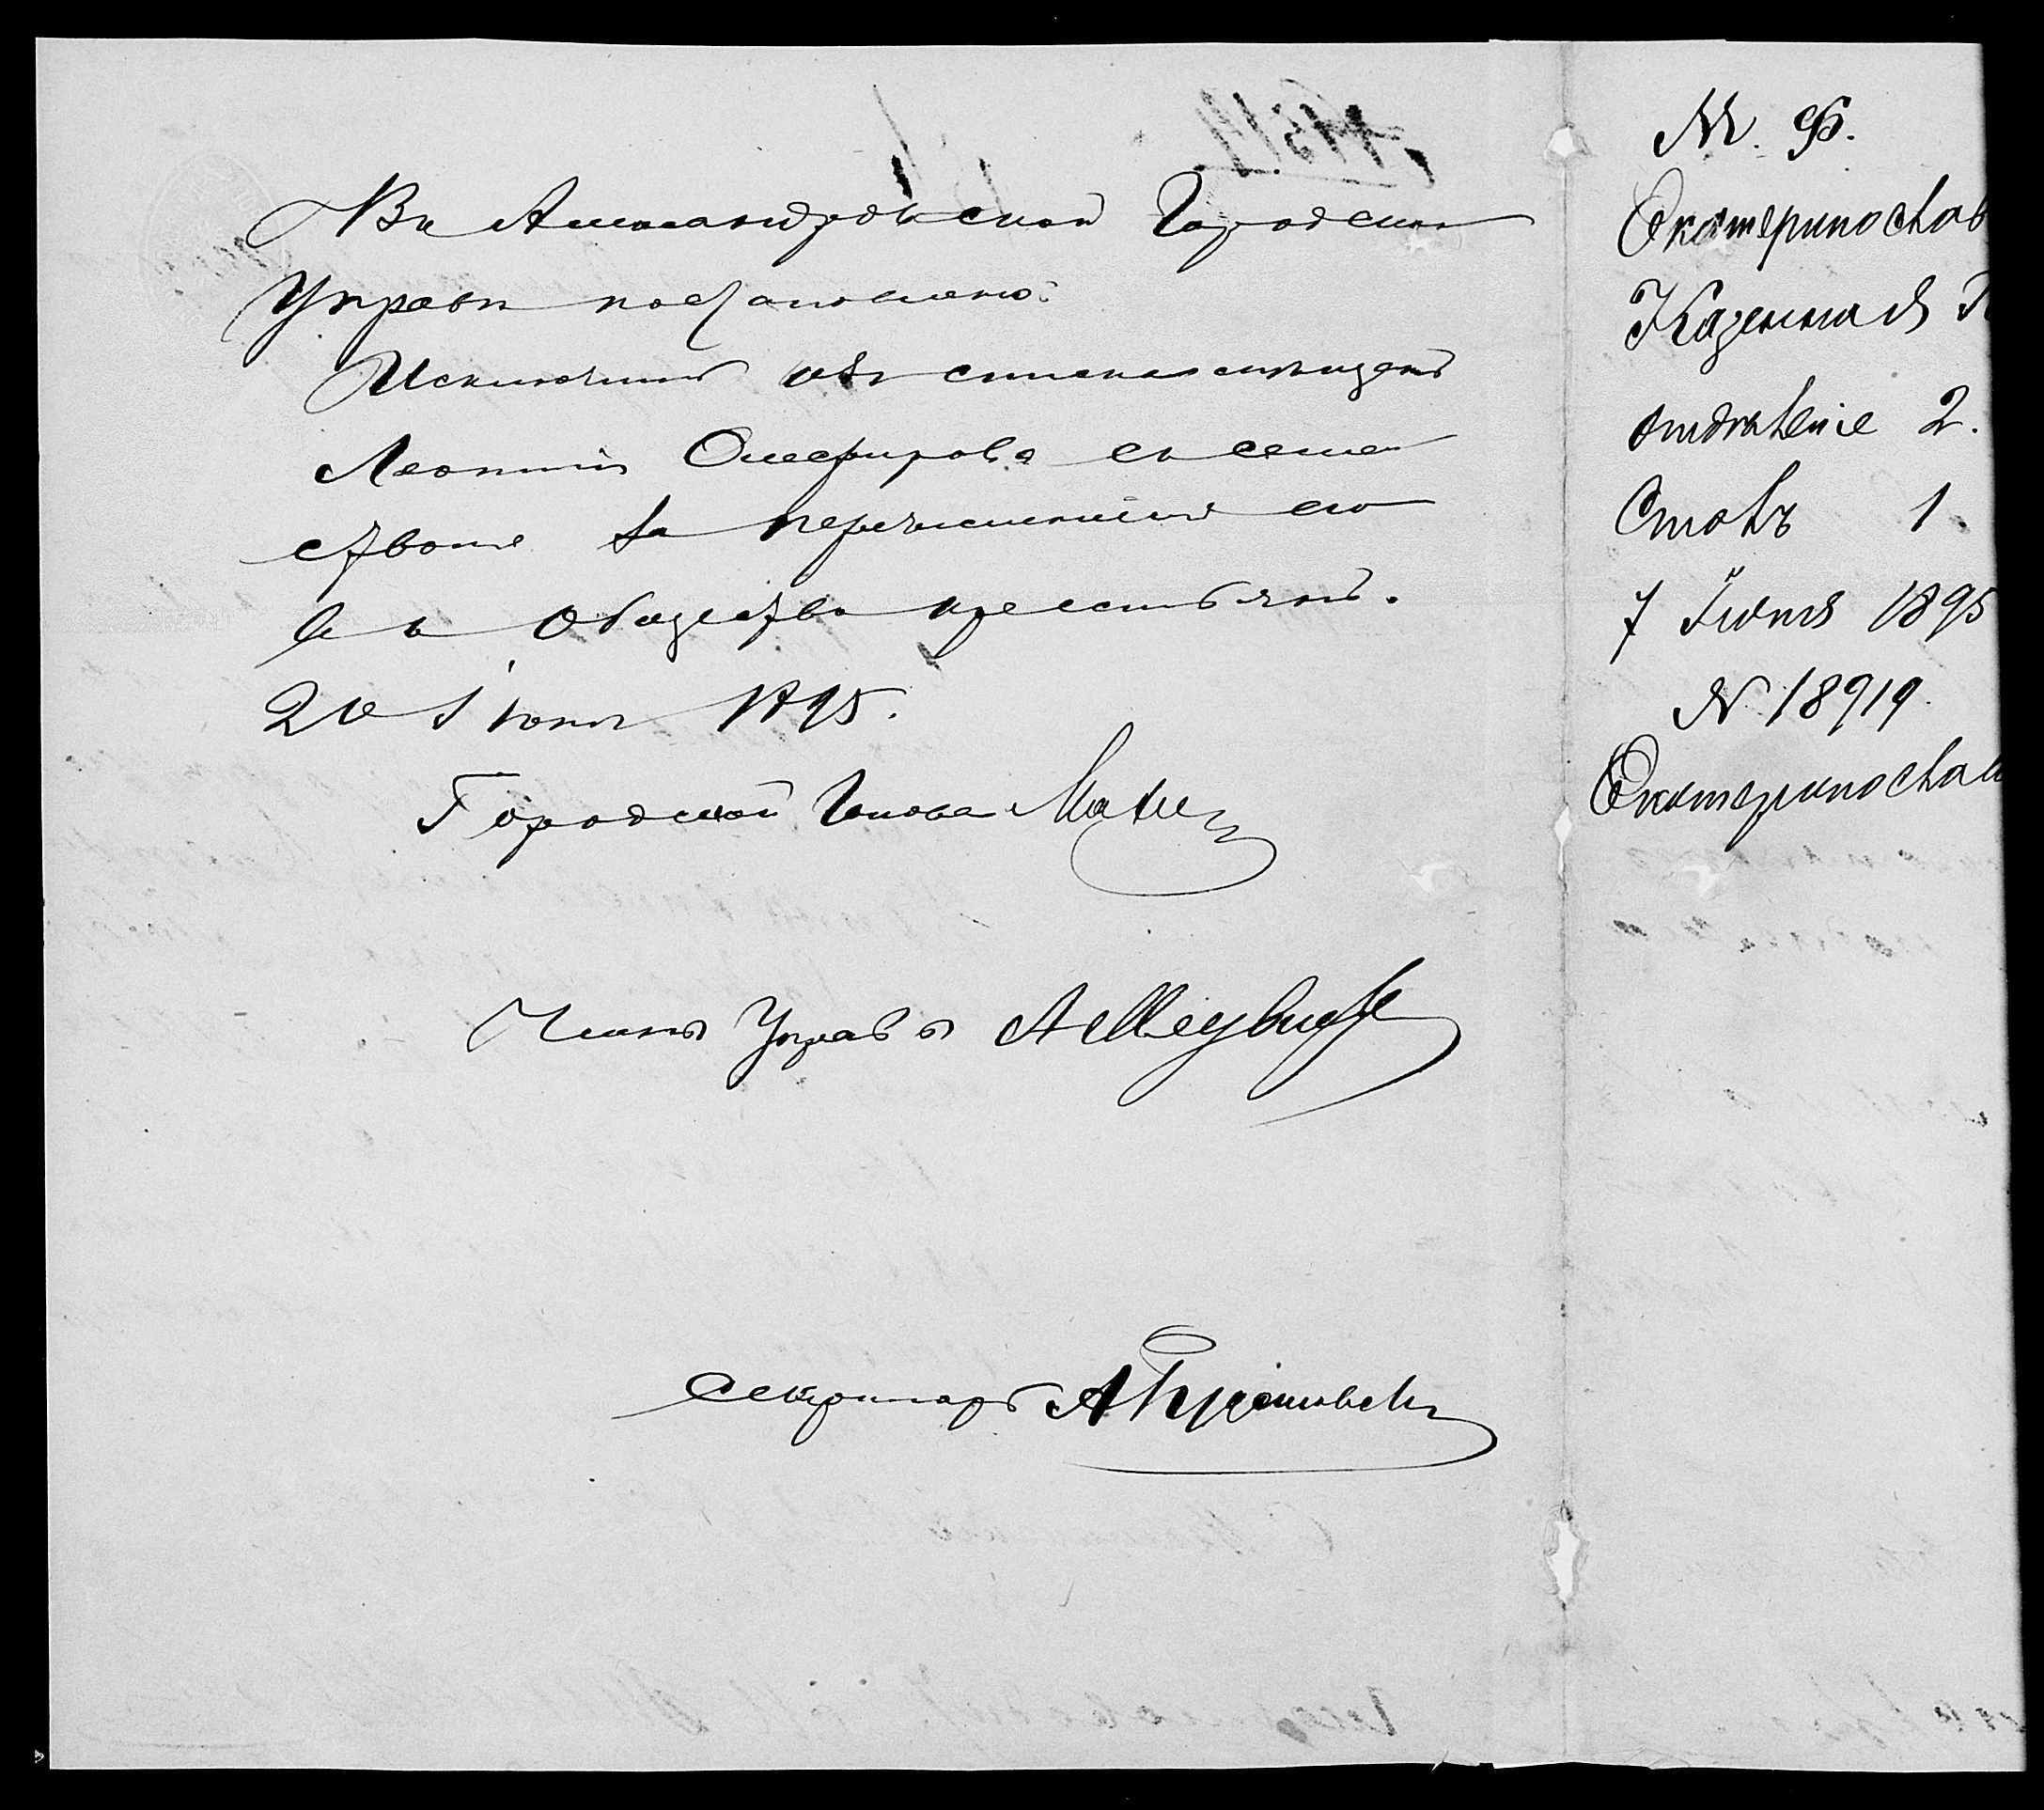 Въ Александровской Городской
Управѣ постановлено:
Исключить изъ списка мѣщанъ
Леонтія Олефирова съ семей
ствомъ за перечисленіемъ его
въ общество крестьянъ.
20 Іюня 1895.
Городской Голова
Членъ Управы
Секретарь
М. Ф.
Екатеринослав
Казенная П
отдѣленіе 2.
Столъ 1
7 Іюня 1895
№ 18919.
Екатеринослав